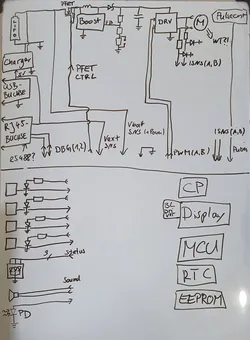 LIPO
PFET
Boost
DRV
M
Pulsecnt
WTZI
Charger
USB-
BUCHSE
PFET
CTRL
ISNS(A,B)
RJ45-
BUCHSE
Vext
SNS
Vboost
SNS
RS485?
DBG(1,2)
PWM(A,B)
ISNS(A,B)
Status
Sound
PD
CP
BL
Display
MCU
RTC
EEPROM